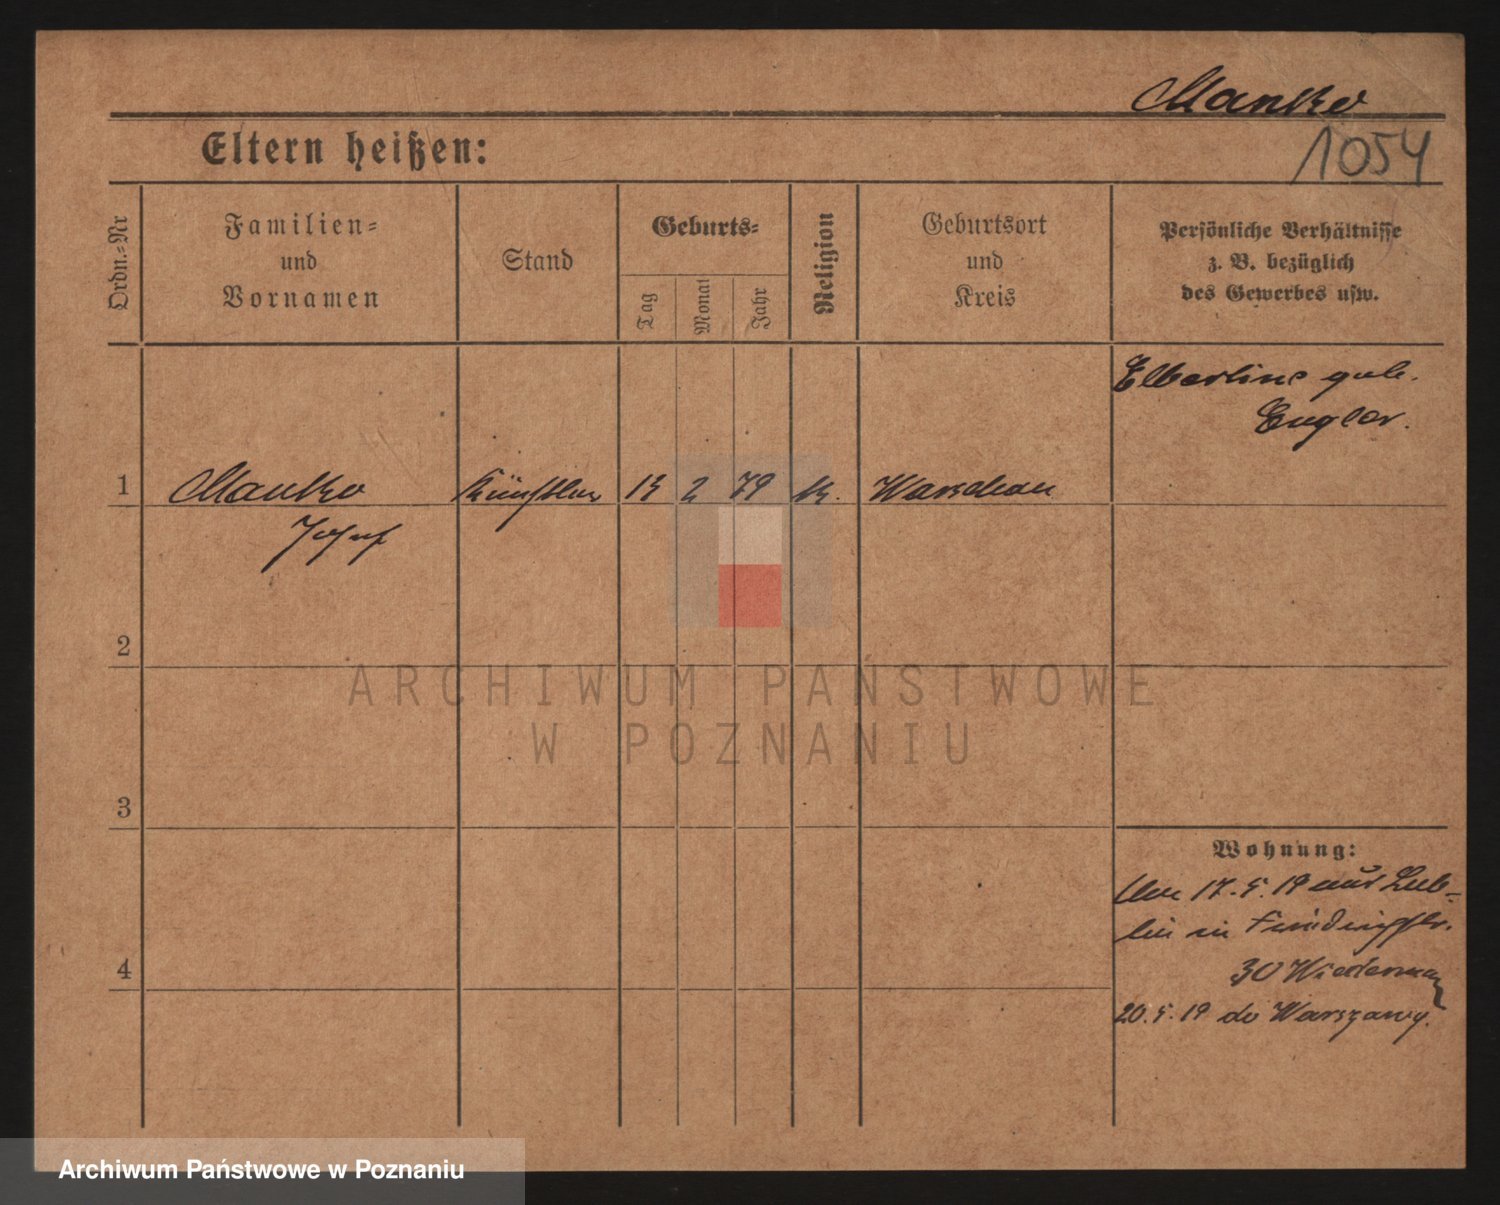 Manko
1054
Eltern heißen:
Ordn.-Nr
Familien-
und
Vornamen
Stand
Geburts-
Tag
Monat
Jahr
Religion
Geburtsort
und
Kreis
Persönliche Verhältnisse
z. B. bezüglich
des Gewerbes usw.
geb.
Engler.
1 Manko Künstler 2 79 k. Warschau
Josef
2
3
4
Wohnung:
17. 5. 19 aus Lub-
lin in
30
20. 5. 19 do Warszawy.
ARCHIWUM PAŃSTWOWE
W POZNANIU
Archiwum Państwowe w Poznaniu